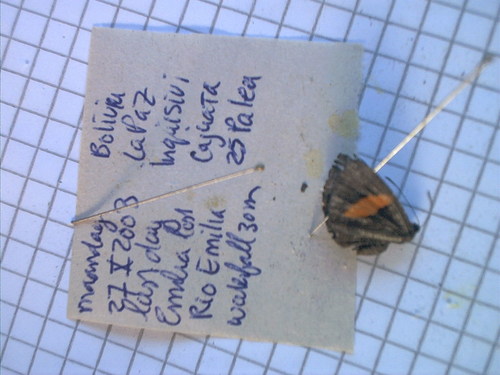 Bolivia
La Paz
Inquisivi
Cajuata
25 Palca
monday
27 X 2003
last day
Emilia Post
Rio Emilia
waterfall 30m